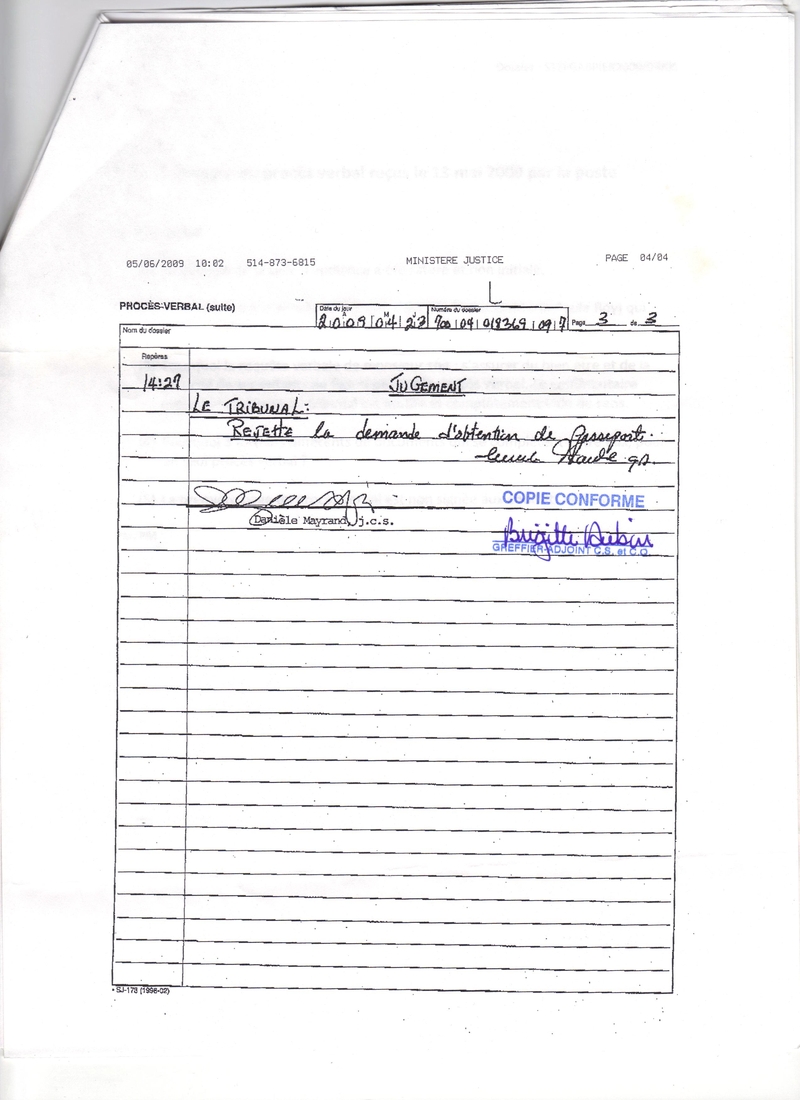 05/06/2009 10:02 514-873-6815 MINISTERE JUSTICE PAGE 04/04
PROCÈS-VERBAL (suite)
Date du jour
A M J
2009 04 23
Numéro du dossier
700 04 018369 09 7
Page 3 de 3
Nom du dossier
Repères
14:27 JUGEMENT
LE TRIBUNAL:
REJETTE la demande d'obtention de passeport.
g.a.
Danièle Mayrand, j.c.s.
COPIE CONFORME
Brigitte Aubin
GREFFIER-ADJOINT C.S. et C.Q.
SJ-173 (1996-02)